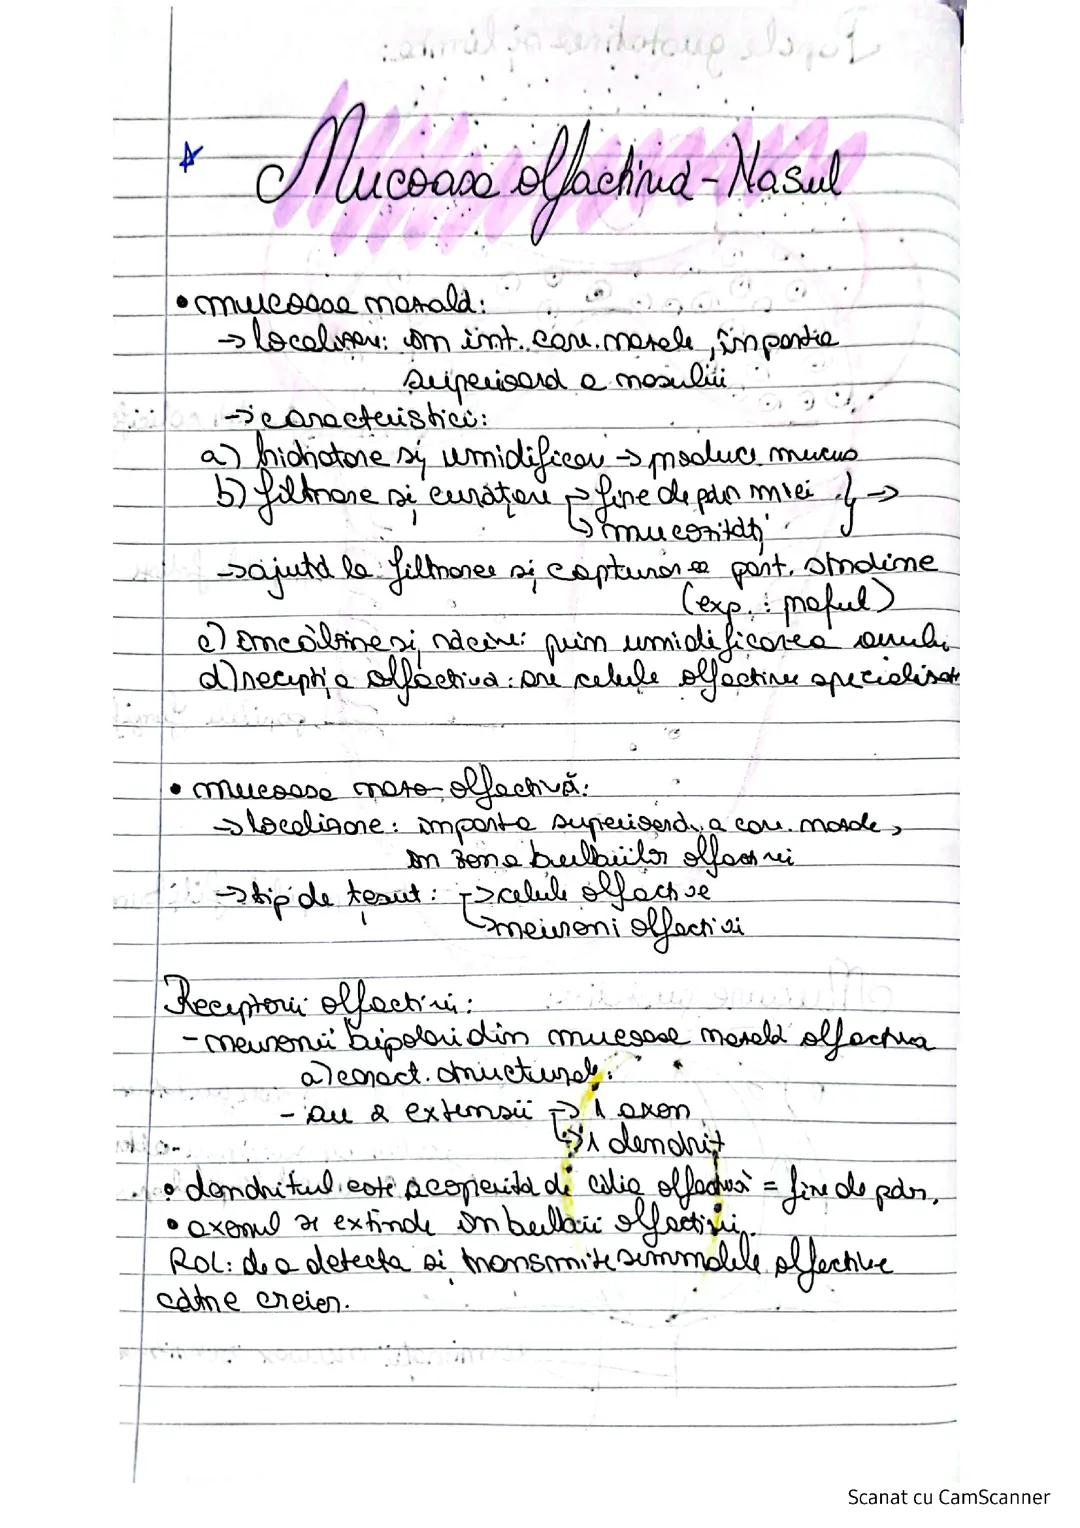 Mucoasa olfactivă - Nasul
• mucoasa nazală:
→ localizare: în int. cav. nazale, în partea
superioară a nasului
→ caracteristici:
a) hidratare și umidificare → produce mucus
b) filtrare și curățare → fire de păr mici } →
↳ mucozități
→ ajută la filtrarea și capturarea part. străine
(exp.: praful)
c) încălzire și răcire: prin umidificarea aerului
d) recepția olfactivă: are celule olfactive specializate
• mucoasa nazo-olfactivă:
→ localizare: în partea superioară a cav. nazale,
în zona bulbilor olfactivi
→ tip de țesut: → celule olfactive
↳ neuroni olfactivi
Receptorii olfactivi:
- neuronii bipolari din mucoasa nazală olfactiva
a) caract. structurale:
- au 2 extensii → 1 axon
↳ 1 dendrit
• dendritul este acoperită de cilia olfactivă = fire de păr.
• axonul se extinde în bulbii olfactivi.
Rol: de a detecta și transmite semnalele olfactive
către creier.
Scanat cu CamScanner